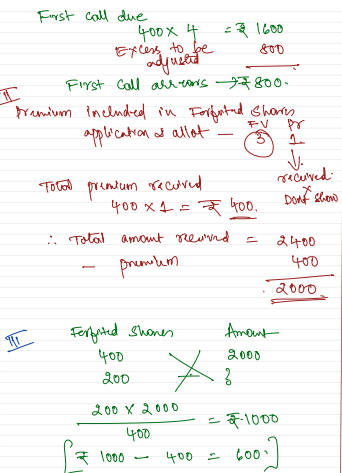 First call due
400 x 4 = ₹ 1600
Excess to be adjusted 800
First call arrears → ₹ 800.
II
Premium included in Forfeited Shares
application & allot — FV 3 Pr 1
received
x
Dont show
Total premium received
400 x 1 = ₹ 400.
∴ Total amount received = 2400
— premium 400
2000
III
Forfeited Shares Amount
400 2000
200 ?
200 x 2000 / 400 = ₹ 1000
[₹ 1000 — 400 = 600]